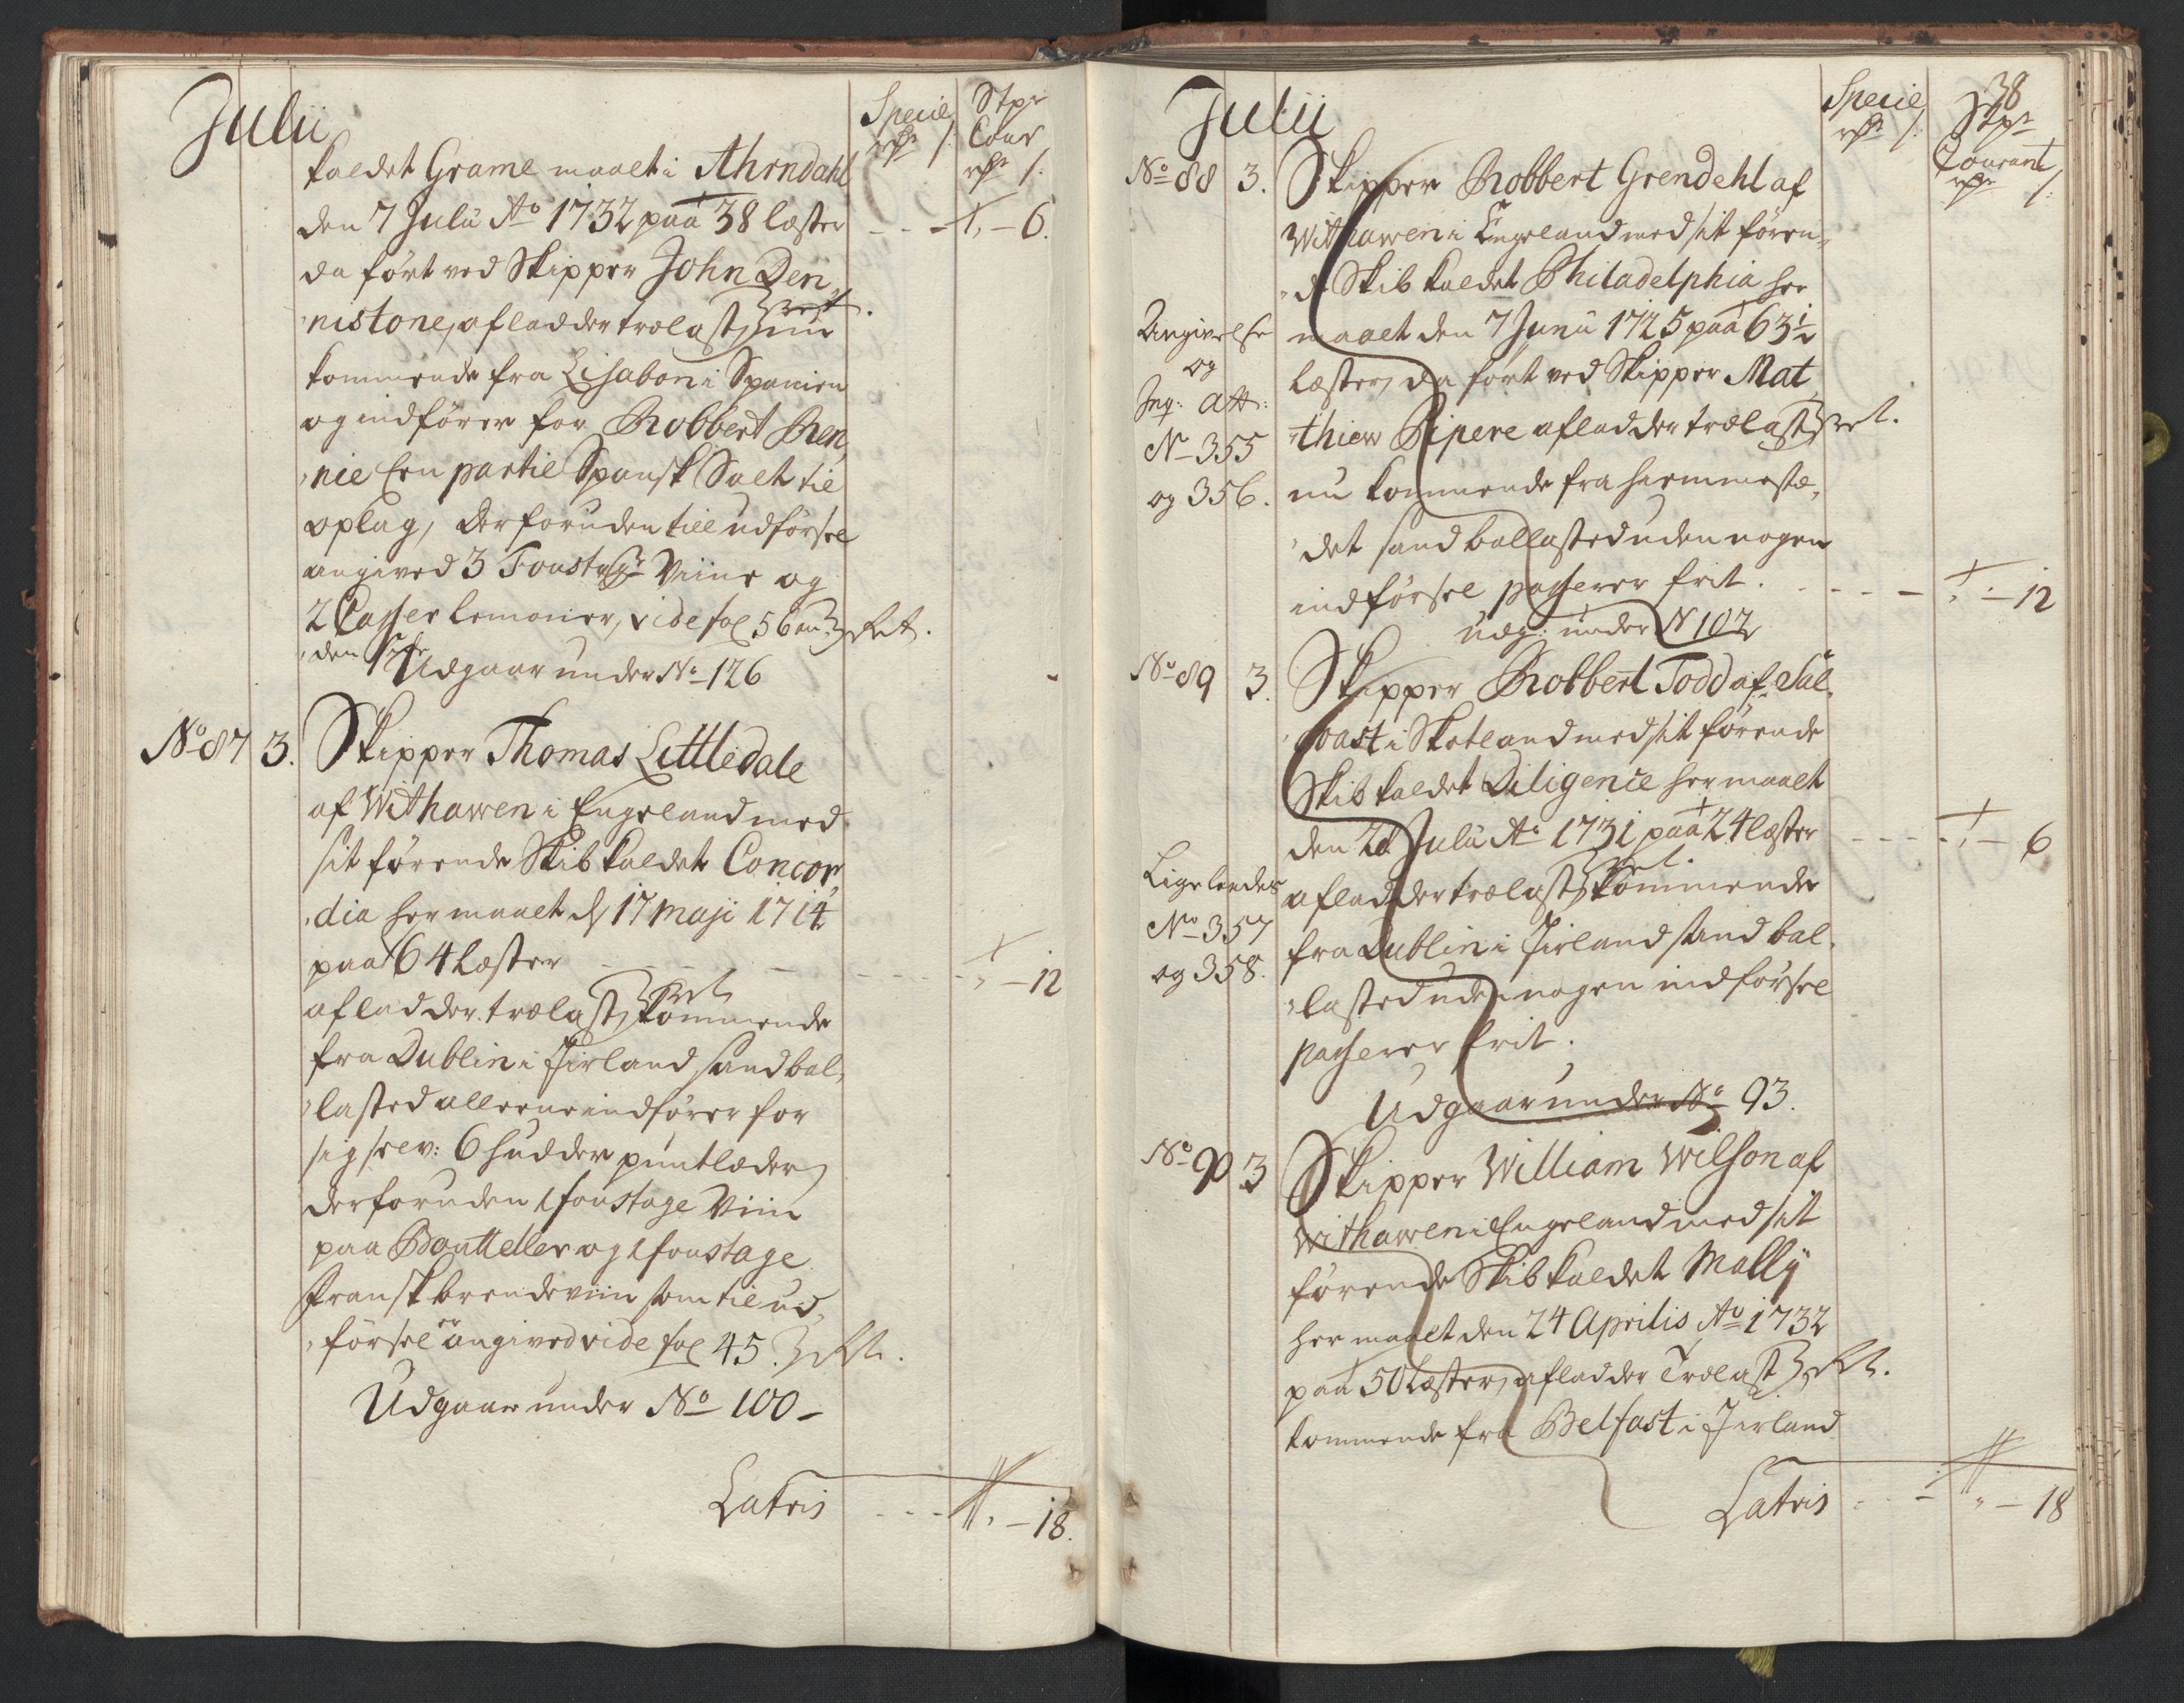 Julii
Specie
Stpr
Cour
kaldet Grame maalt i Ahrndahl
den 7 Julii Ao 1732 paa 38 læster - - - 6.
da ført ved Skipper John Den,
nistone, aflad der trælast, nu
kommende fra Lisabon i Spanien
og indfører for Robbert Ren,
nie Een partie Spansk Salt til
oplag, derforuden till udførsel
angived 3 Foustager Viine og
2 Casser Lemonier, vide fol 56
Udgaar under No 126
No 87 3. Skipper Thomas Littledale
af Withawen i Engeland med
sit førende Skib kaldet Concor,
dia her maalt d 17 Maji 1714
paa 64 Læster - - - 12
aflad der trælast, kommende
fra Dublin i Jirland sand bal,
lasted alleene indfører for
sig selv: 6 hudder puntlæder,
derforuden 1 foustage Viin
paa Boutteller og 1 foustage
fransk brendeviin som til ud,
førsel er angived vide fol 45.
Udgaar under No 100
Latris - - - 18.
Julii
38
Specie
Stpr
Courant
No 88 3. Skipper Robbert Grendehl af
Withawen i Engeland med sit føren,
de Skib kaldet Philadelphia her
Angivelse maalt den 7 Junii 1725 paa 63½
og
Læster, da ført ved Skipper Mat
Inq: Att:
No 355 thiew Pipere aflad der trælast
og 356. nu kommende fra hiemmestæ,
det sand ballasted uden nogen
indførsel passerer frit. - - - 12
udg: under N 102
No 89 3. Skipper Robbert Todd af Sal,
coast i Skotland med sit førende
Skib kaldet Diligence her maalt
den 28 Julii Ao 1731 paa 24 læster - - - 6
Ligeleedes aflad der trælast, kommende
No 357
og 358. fra Dublin i Jirland sand bal,
lasted uden nogen indførsel
passerer frit.
Udgaar under No 93.
No 90 3 Skipper William Wilson af
Withawen i Engeland med sit
førende Skib kaldet Mally
her maalt den 24 Aprilis Ao 1732
paa 50 Læster, aflad der Trælast
kommende fra Belfast i Jirland
Latris - - - 18